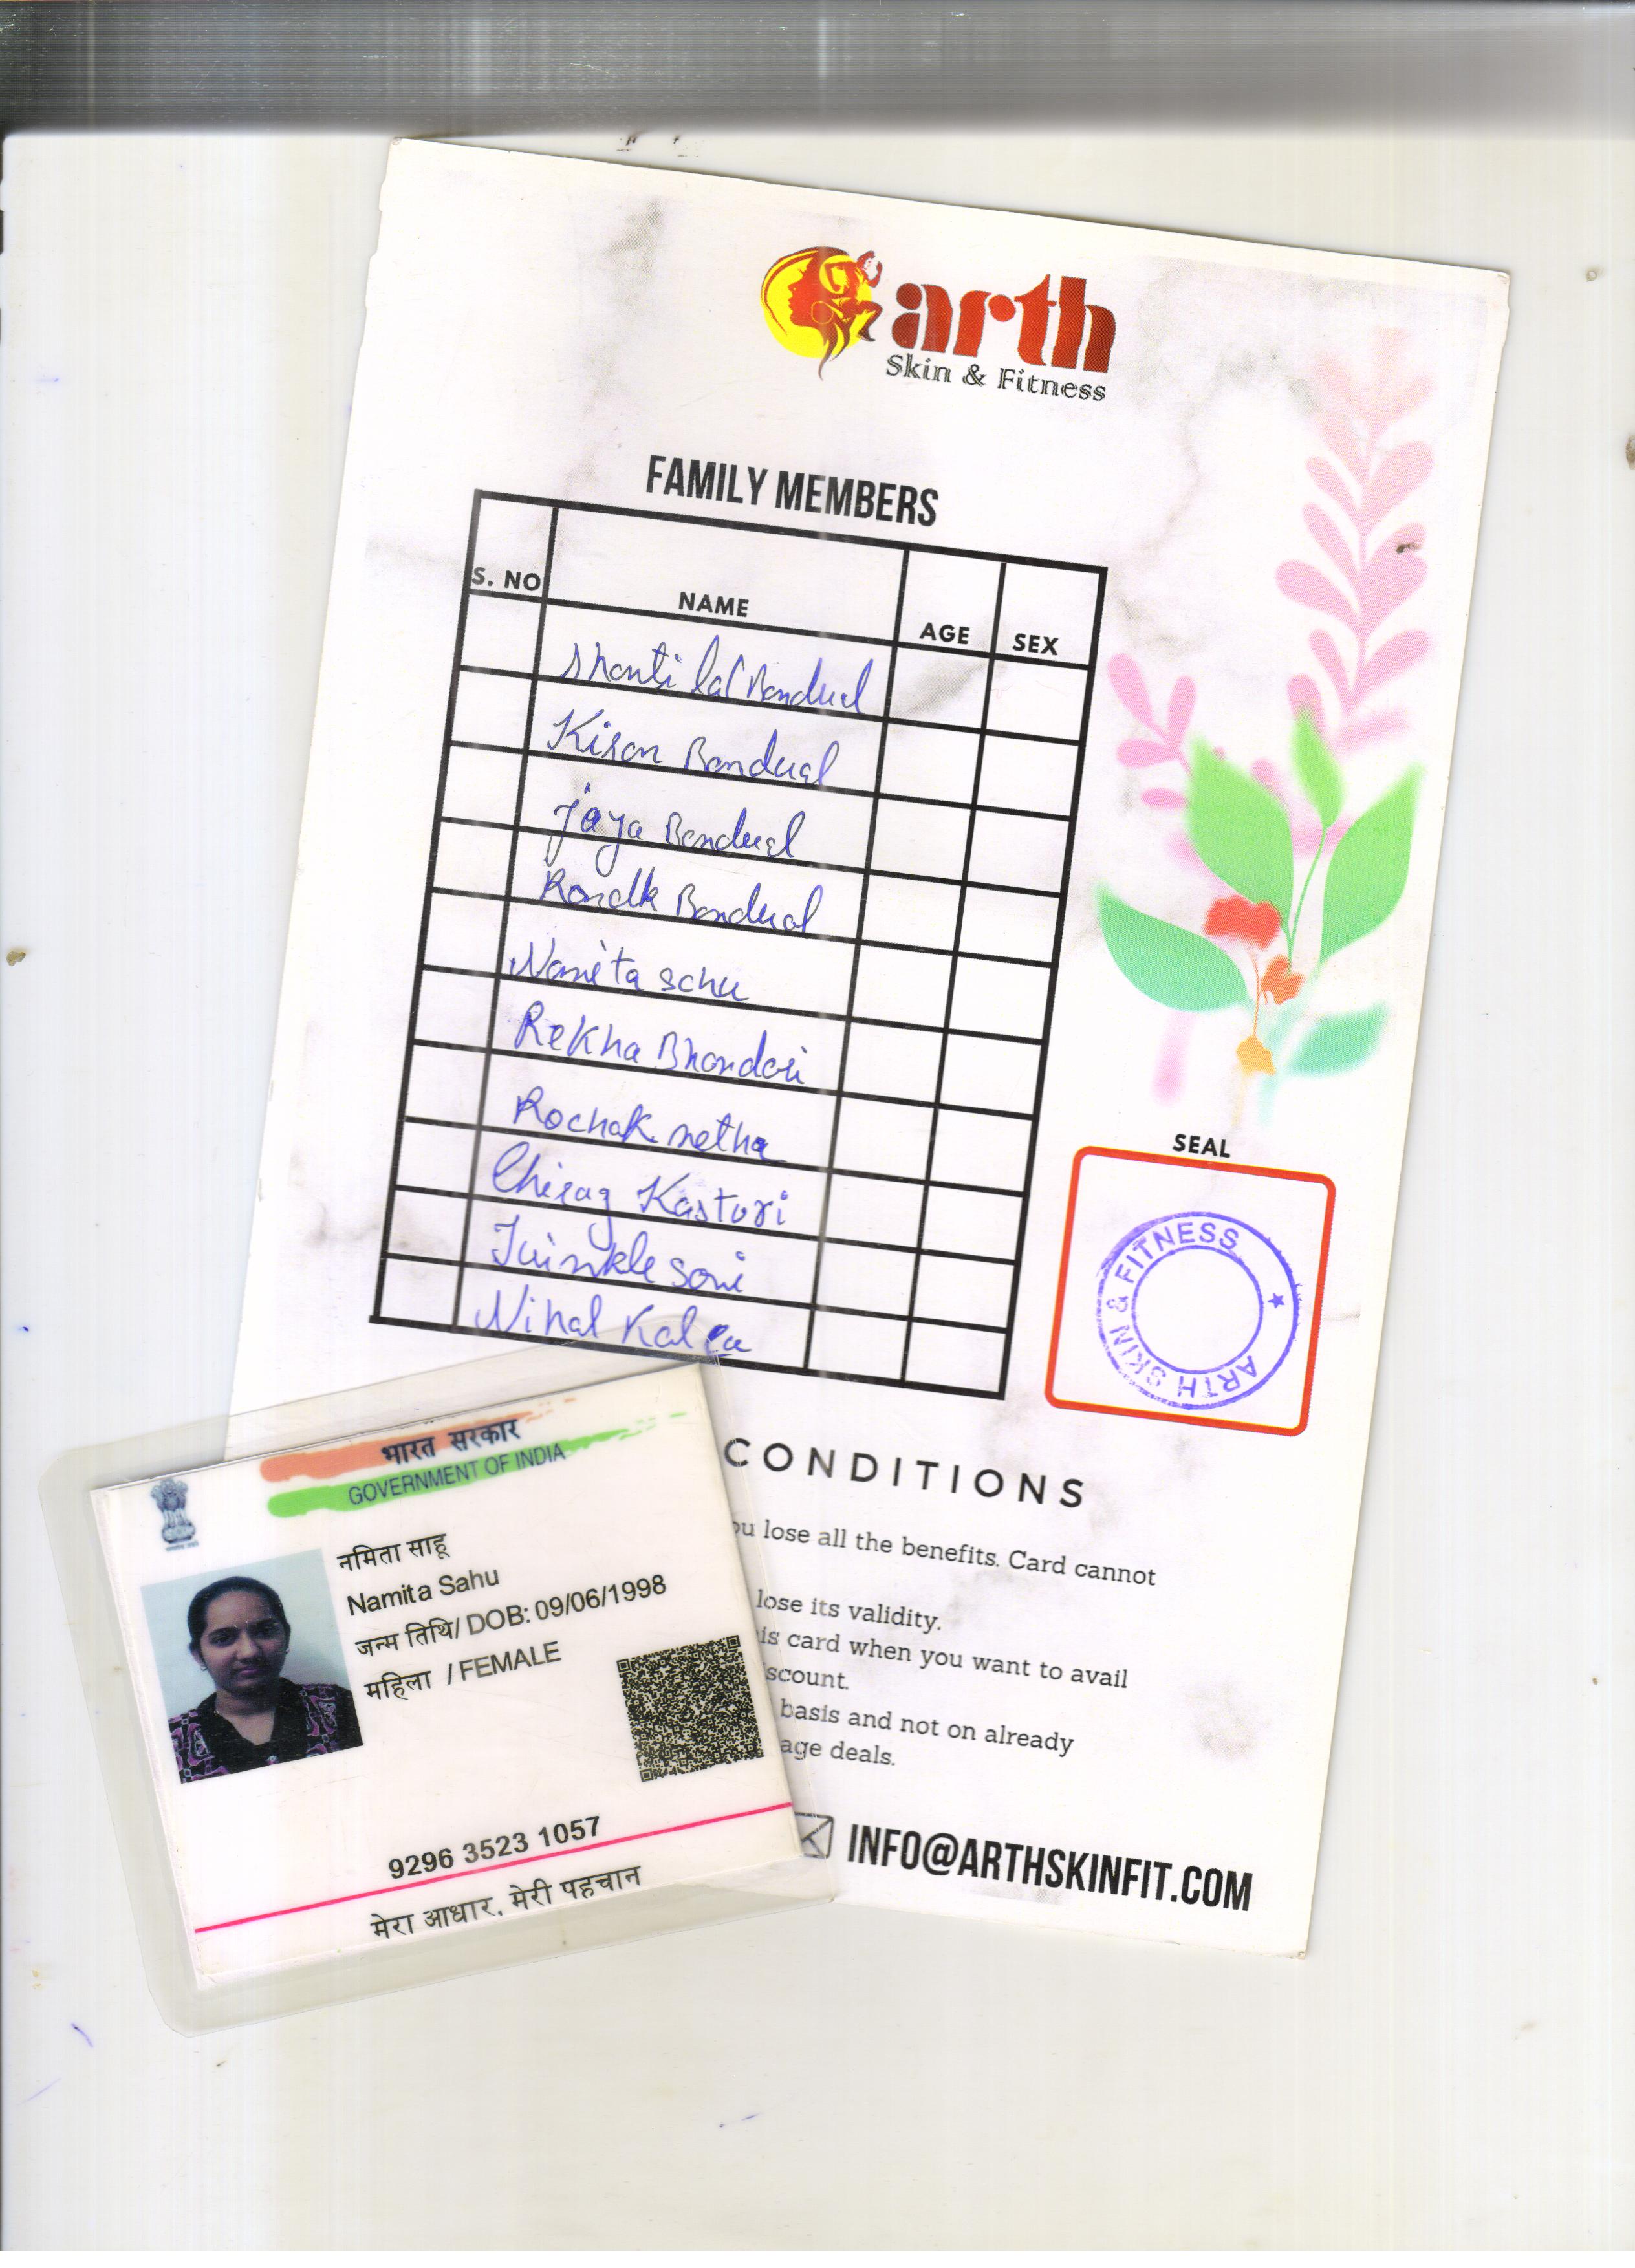 arth
Skin & Fitness
FAMILY MEMBERS
S. NO NAME AGE SEX
Shanti lal Bandwal
Kiran Bandwal
Jaya Bandwal
Bandwal
Namita sahu
Rekha Bhandari
Rochak metha
Chirag Kastori
Twinkle soni
Nihal
SEAL
ARTH SKIN & FITNESS
CONDITIONS
lose all the benefits. Card cannot
lose its validity.
card when you want to avail
basis and not on already
deals.
INFO@ARTHSKINFIT.COM
भारत सरकार
GOVERNMENT OF INDIA
नमिता साहू
Namita Sahu
जन्म तिथि/ DOB: 09/06/1998
महिला / FEMALE
9296 3523 1057
मेरा आधार, मेरी पहचान